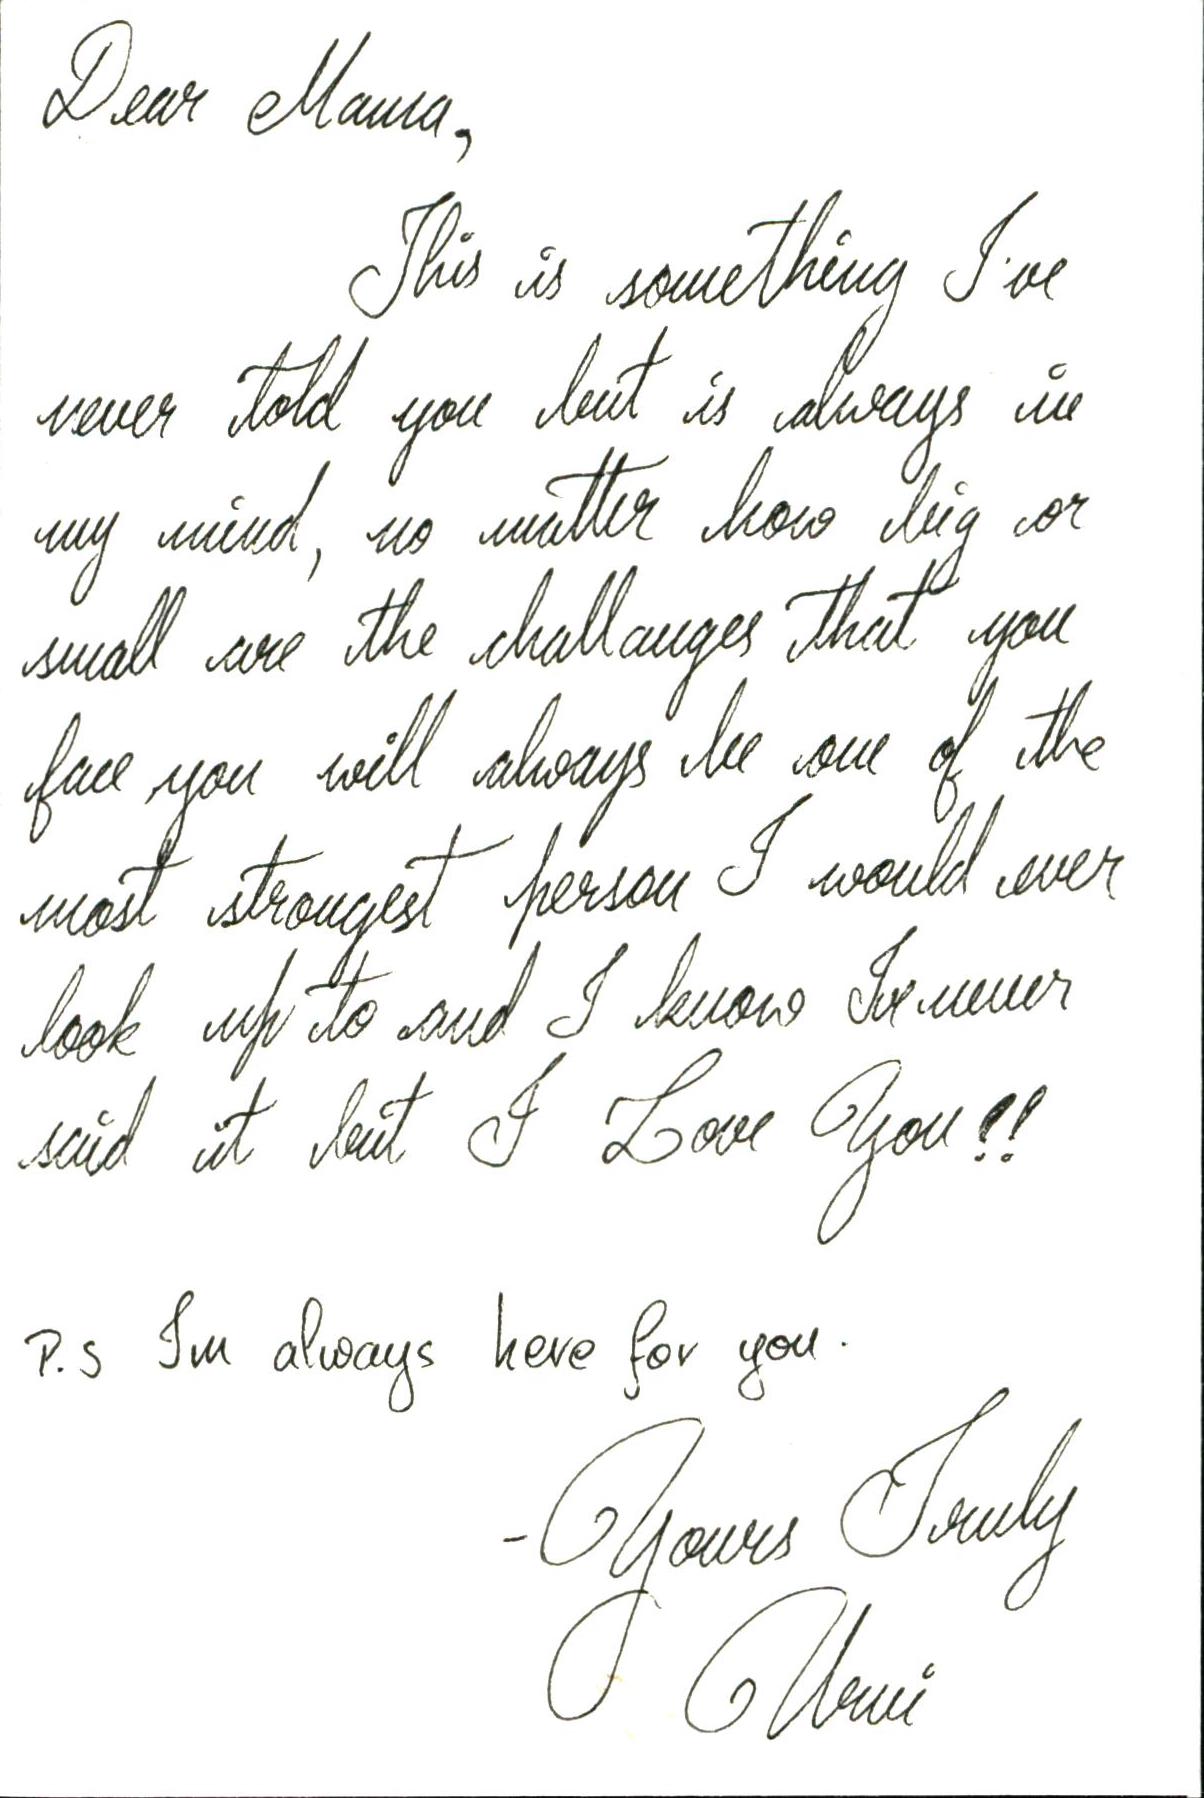 Dear Mama,
This is something I've
never told you but is always in
my mind, no matter how big or
small are the challanges that you
face you will always be one of the
most strongest person I would ever
look up to and I know I've never
said it but I Love You!!
P.S Im always here for you.
- Yours Truly